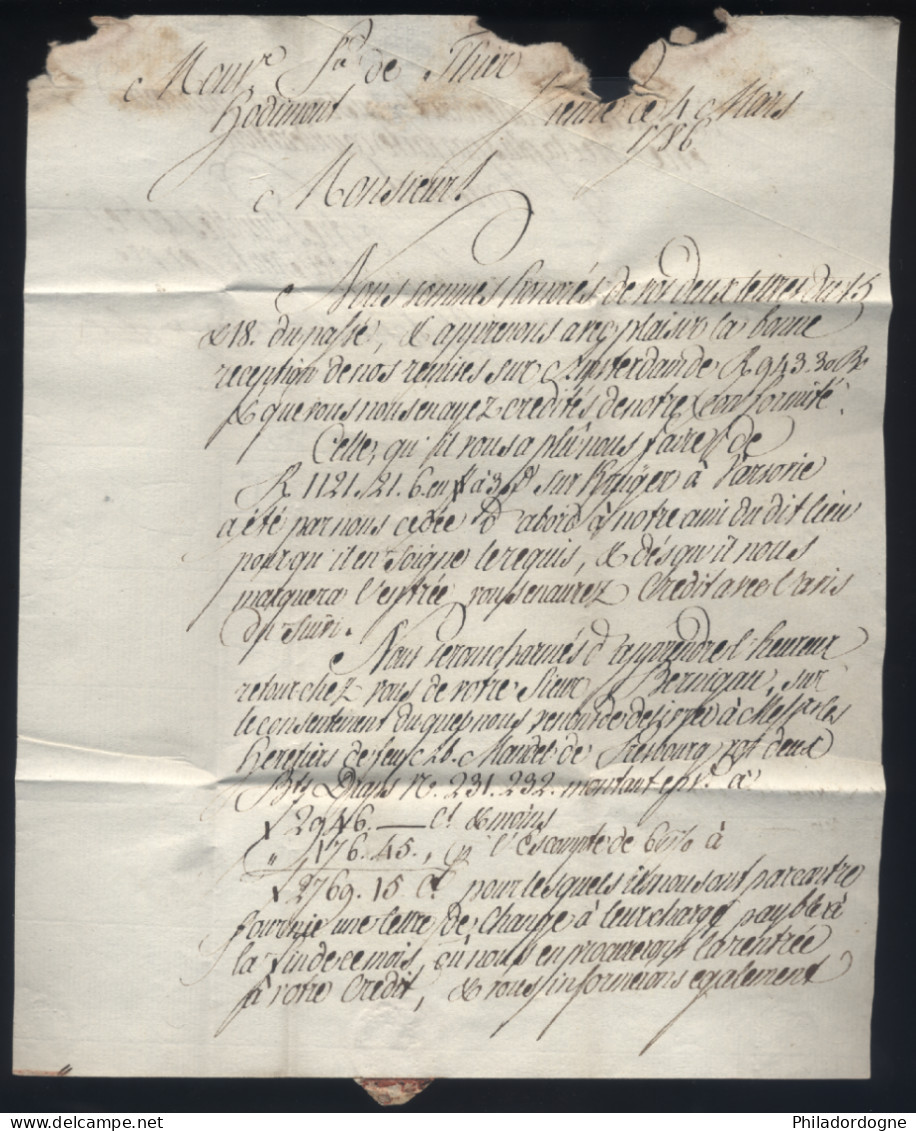 Monsr. de Thier
Hodimont Vienne ce 4 Mars
1786
Monsieur!
Nous sommes honorés de vos deux lettres du 15
& 18. du passé, & apprenons avec plaisir la bonne
reception de nos remises sur Amsterdam de R 943.30
& que vous nous en ayez credités de notre conformité.
Celle, qu'il vous a plû nous faire de
R 1121.21.6. en à sur Krüger à Varsovie
a été par nous cedée d'abord à notre ami du dit lieu
pour qu'il en soigne le requis, & dés qu'il nous
marquera l'entrée vous en aurez Credit avec l'avis
du suivi.
Nous serons charmés d'apprendre l'heureux
retour chez vous de votre Sieur Bernigau, sur
le consentement du quel nous venons de à Mess. les
Heretiers de feu Mandel de Presbourg deux
Draps No. 231.232. montant à
2946. — Ct. & moins
" 176.45., p l'escompte de 6 % à
2769.15 Ct. pour lesquels ils nous ont par contre
fournie une lettre de Change à leur charge payble à
la fin de ce mois, où nous en procurerons la rentrée
à votre Credit, & vous informerons egalement
Philadordogne